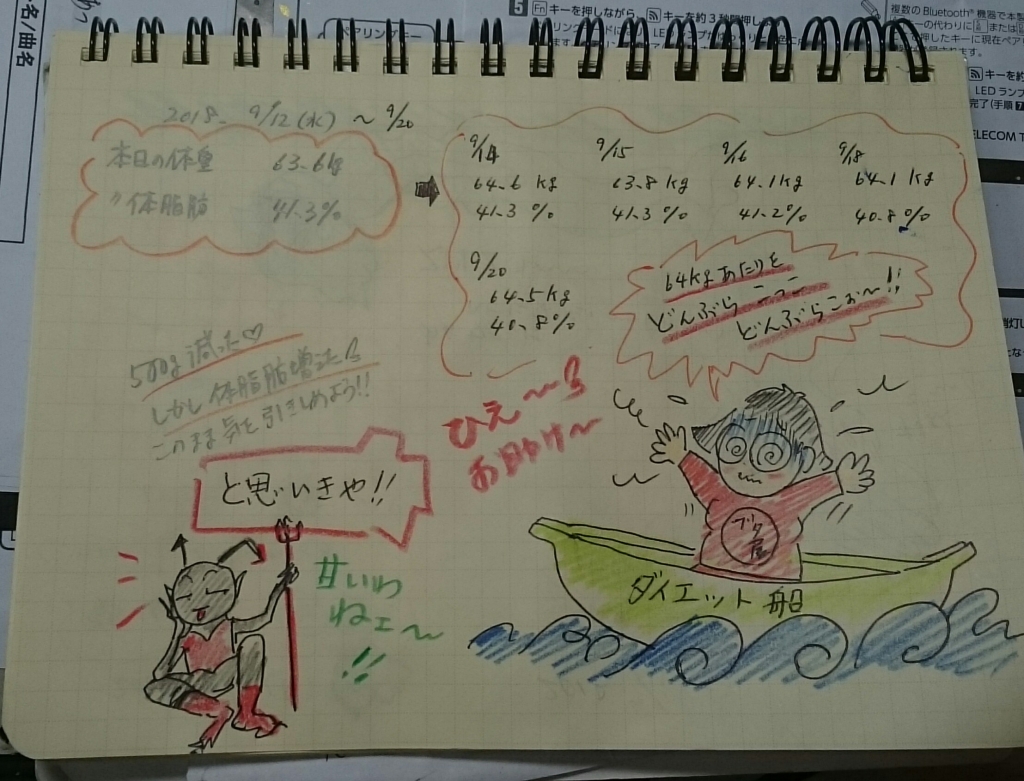 2018. 9/12(水)〜9/20
本日の体重 63.6kg
〃体脂肪 41.3%
9/14
64.6 kg
41.3 %
9/15
63.8 kg
41.3 %
9/16
64.1kg
41.2%
9/18
64.1 kg
40.8%
9/20
64.5 kg
40.8%
64kgあたりを
どんぶらこっこ
どんぶらこぉ〜!!
500g減った♡
しかし体脂肪増
このまま気を引きしめよう!!
と思いきや!!
ひえ〜〜
お助け〜
甘いわ
ねェ〜
!!
ブタ
屋
ダイエット船
名/曲名
5 Fnキーを押しながら、
キーを約3秒間押し
ペアリングキー
複数のBluetooth®機器で本製
キーの代わりに
または
したキーに現在ペア
されます。
キーを約
LEDランプ
完了(手順7
ELECOM